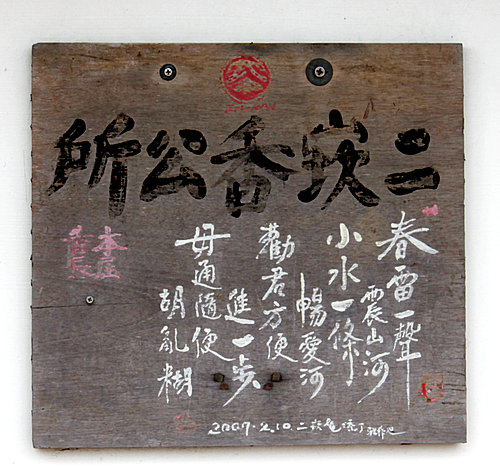 二崁香公所
春雷一聲
震山河
小水一條
暢愛河
勸君方便
進一步
毋通隨便
胡亂糊
2009.2.10.二崁